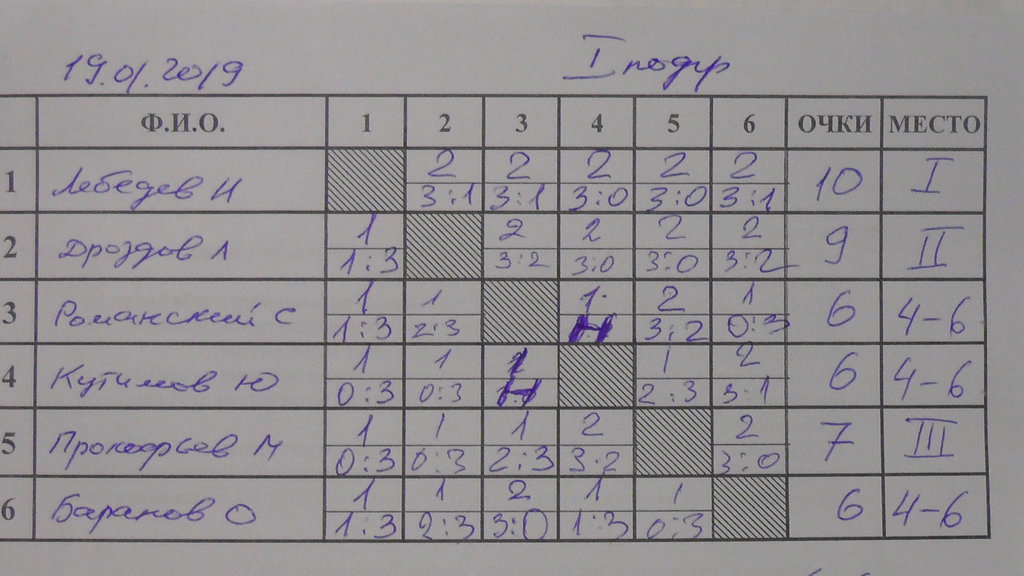 19.01.2019 I подгр
Ф.И.О. 1 2 3 4 5 6 ОЧКИ МЕСТО
1 Лебедев И 2 2 2 2 2 10 I
3:1 3:1 3:0 3:0 3:1
2 Дроздов Л 1 2 2 2 2 9 II
1:3 3:2 3:0 3:0 3:2
3 Романский С 1 1 1 2 1 6 4-6
1:3 2:3 Н 3:2 0:3
4 Кутимов Ю 1 1 1 1 2 6 4-6
0:3 0:3 Н 2:3 3:1
5 Прокофьев М 1 1 1 2 2 7 III
0:3 0:3 2:3 3:2 3:0
6 Баранов О 1 1 2 1 1 6 4-6
1:3 2:3 3:0 1:3 0:3